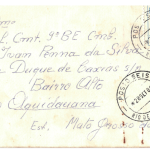 Cmt. 9º BE Cmb.
Ivan Penna da Silva
Duque de Caxias s/n
Bairro Alto
Aquidauana
Est. Mato Grosso
POSTO SEIS